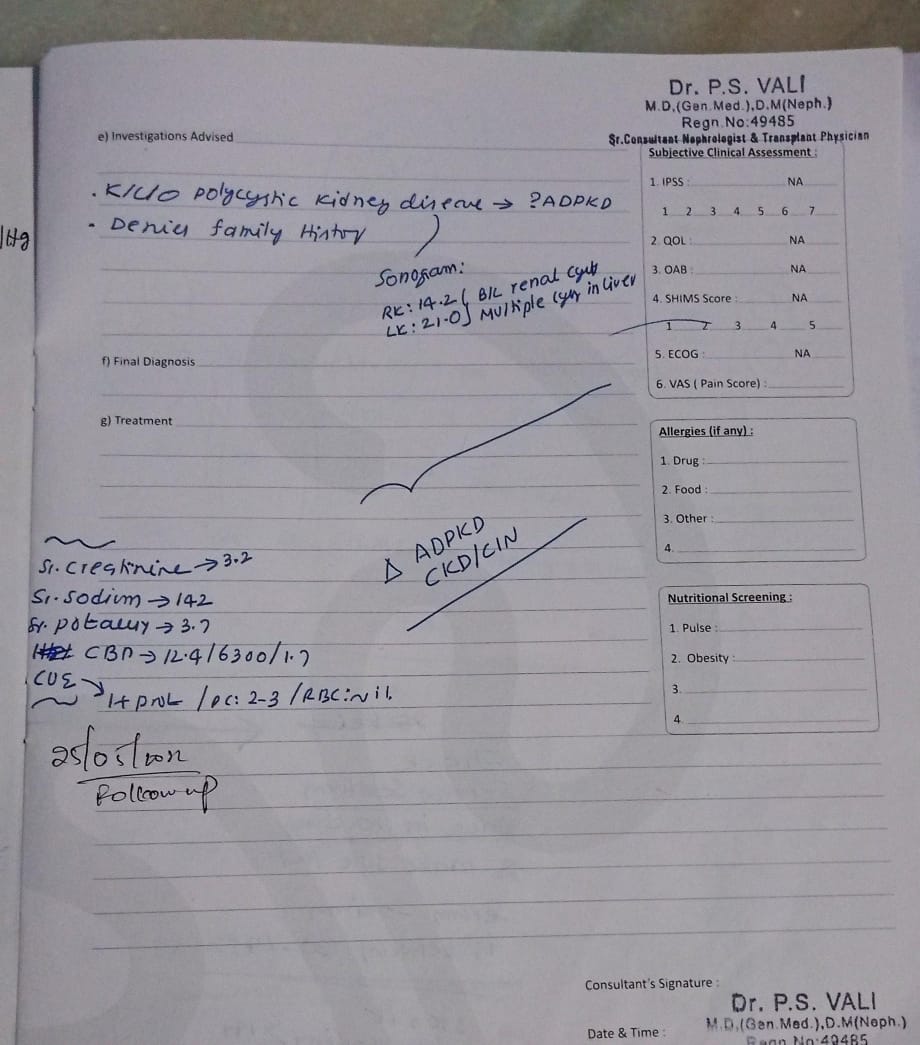 Dr. P.S. VALI
M.D.(Gen.Med.),D.M(Neph.)
Regn.No:49485
Sr.Consultant Nephrologist & Transplant Physician
e) Investigations Advised
. K/C/O polycystic kidney disease → ?ADPKD
- Denies family History
Sonogram:
RK: 14.2 B/L renal cysts
LK: 21.0 Multiple cysts in liver
f) Final Diagnosis
g) Treatment
Δ ADPKD
CKD/CIN
Sr. creatinine → 3.2
Sr. sodium → 142
Sr. potassium → 3.7
CBP → 12.4/6300/1.7
CUE → 1+ prot /PC: 2-3 /RBC: Nil.
Follow up
Subjective Clinical Assessment :
1. IPSS : NA
1 2 3 4 5 6 7
2. QOL : NA
3. OAB : NA
4. SHIMS Score : NA
1 2 3 4 5
5. ECOG : NA
6. VAS ( Pain Score) :
Allergies (if any) :
1. Drug :
2. Food :
3. Other :
4.
Nutritional Screening :
1. Pulse :
2. Obesity :
3.
4.
Consultant's Signature :
Dr. P.S. VALI
M.D.(Gen.Med.),D.M(Neph.)
Date & Time :
Regn No:49485